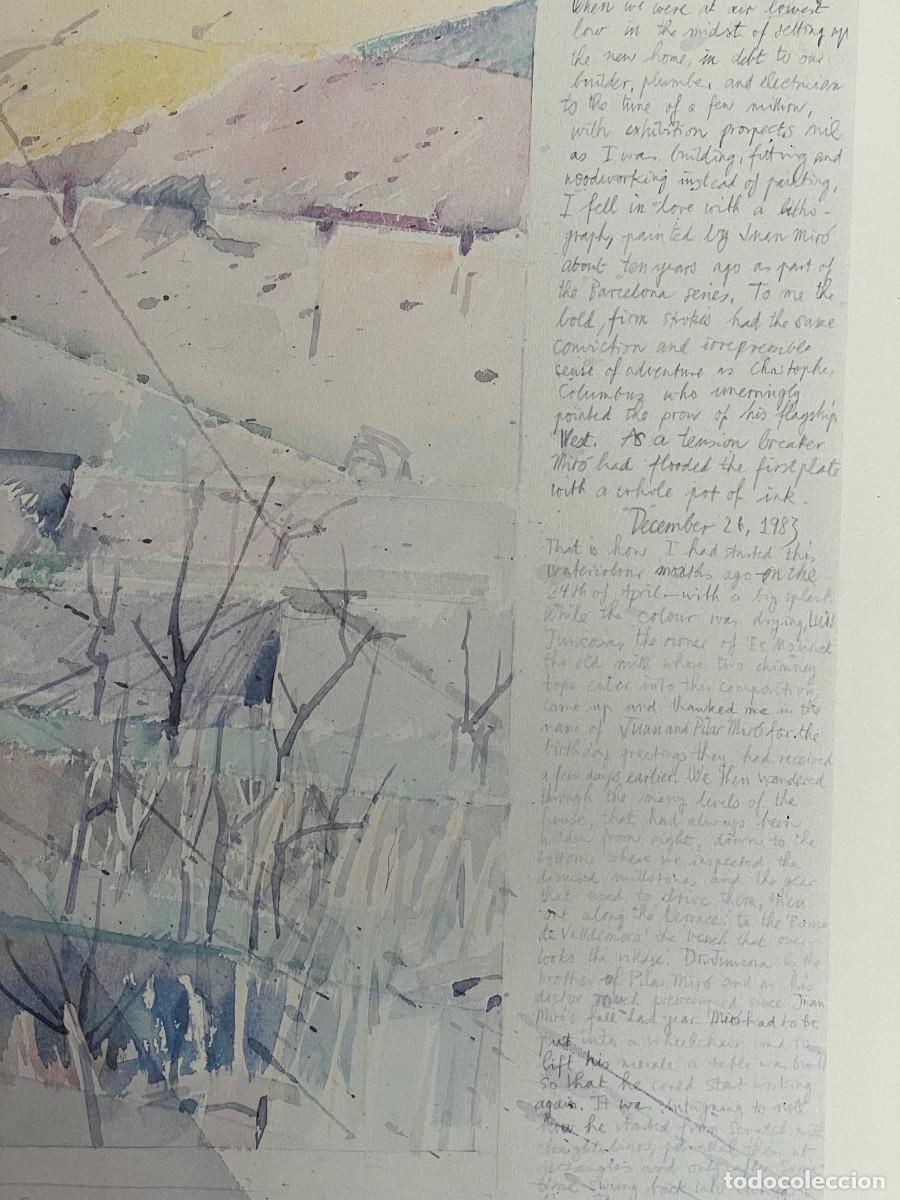 When we were at our lowest
low in the midst of setting up
the new home, in debt to our
builder, plumber and electrician
to the tune of a few million,
with exhibition prospects nil
as I was building, fitting and
woodworking instead of painting,
I fell in love with a litho-
graph, painted by Juan Miró
about ten years ago as part of
the Barcelona series. To me the
bold, firm strokes had the same
conviction and irrepressible
sense of adventure as Christopher
Columbus who unerringly
pointed the prow of his flagship
West. As a tension breaker
Miró had flooded the first plate
with a whole pot of ink.
December 26, 1983
That is how I had started this
watercolour months ago on the
24th of April - with a big splash
While the colour was drying, Luis
Juncosa, the owner of 'Es Molinet
the old mill whose two chimney
tops enter into this composition,
came up and thanked me in the
name of Juan and Pilar Miró for the
birthday greetings they had received
a few days earlier. We then wandered
through the many levels of the
house, that had always been
hidden from sight, down to the
bottom where we inspected the
disused millstones and the gear
that used to drive them, then
out along the terrace to the
de Valldemosa' the bench that over-
looks the village. Dr. Juncosa is the
brother of Pilar Miró and as his
doctor much preoccupied since Juan
Miró's fall last year. Miró had to be
put into a wheelchair and to
lift his morale a table was built
so that he could start working
again. It was intriguing to note
how he started from scratch with
straight lines, them at
rectangles and only
swing back
todocoleccion
todocoleccion.net